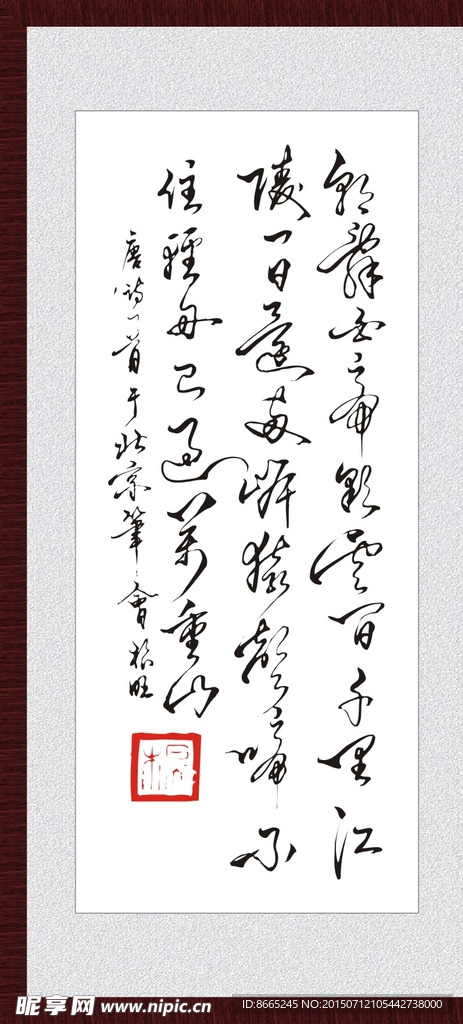 朝辭白帝彩雲间千里江
陵一日還兩岸猿聲啼不
住輕舟已過萬重山
唐詩一首于北京筆會
昵享网 www.nipic.cn
ID:8665245 NO:20150712105442738000